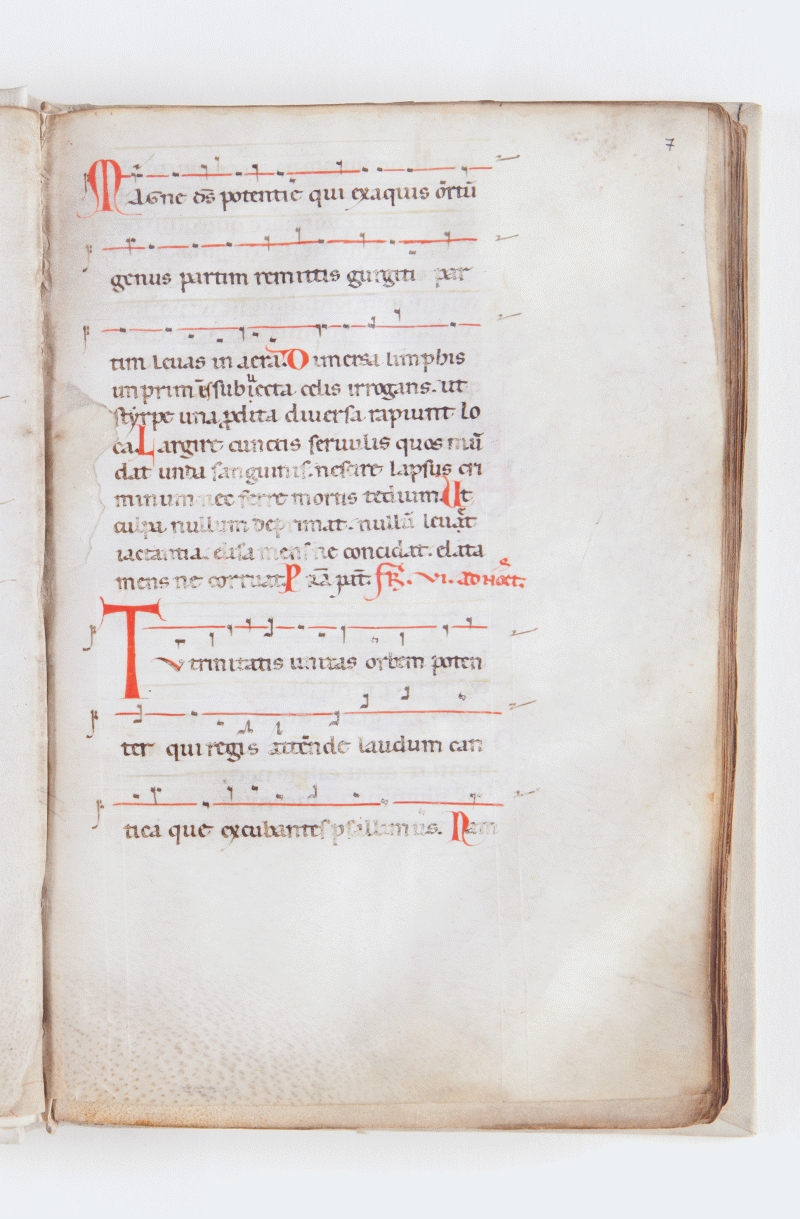 7
Magne ds̄ potentie qui ex aquis ortū
genus partim remittis gurgiti par
tim leuas in aera. Dimersa limphis
imprimēs subuecta celis irrogans. ut
styrpe una ꝓdita diuersa rapiunt lo
ca. Largire cunctis seruulis quos mū
dat unda sanguinis. nescire lapsus cri
minum nec ferre mortis tedium. Ut
culpa nullum deprimat. nullū leuāt
iactantia. elisa mens ne concidat. elata
mens ne corruat. P
Tu trinitatis unitas orbem poten
ter qui regis attende laudum can
tica que excubantes psallimus. Nam